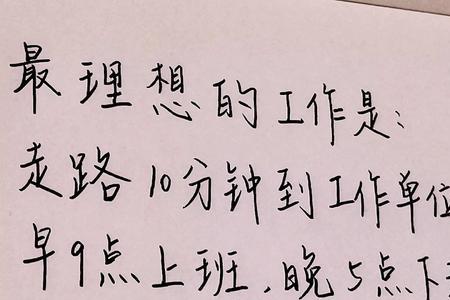 最理想的工作是:
走路10分钟到工作单位
早9点上班.晚5点下